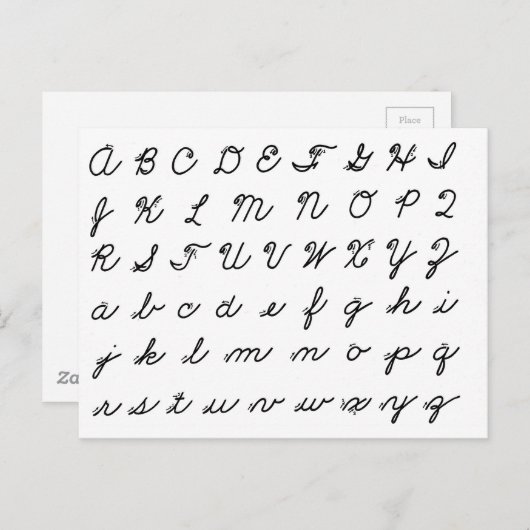 Place
A B C D E F G H I
J K L M N O P Q
R S T U V W X Y Z
a b c d e f g h i
j k l m n o p q
r s t u v w x y z
Za